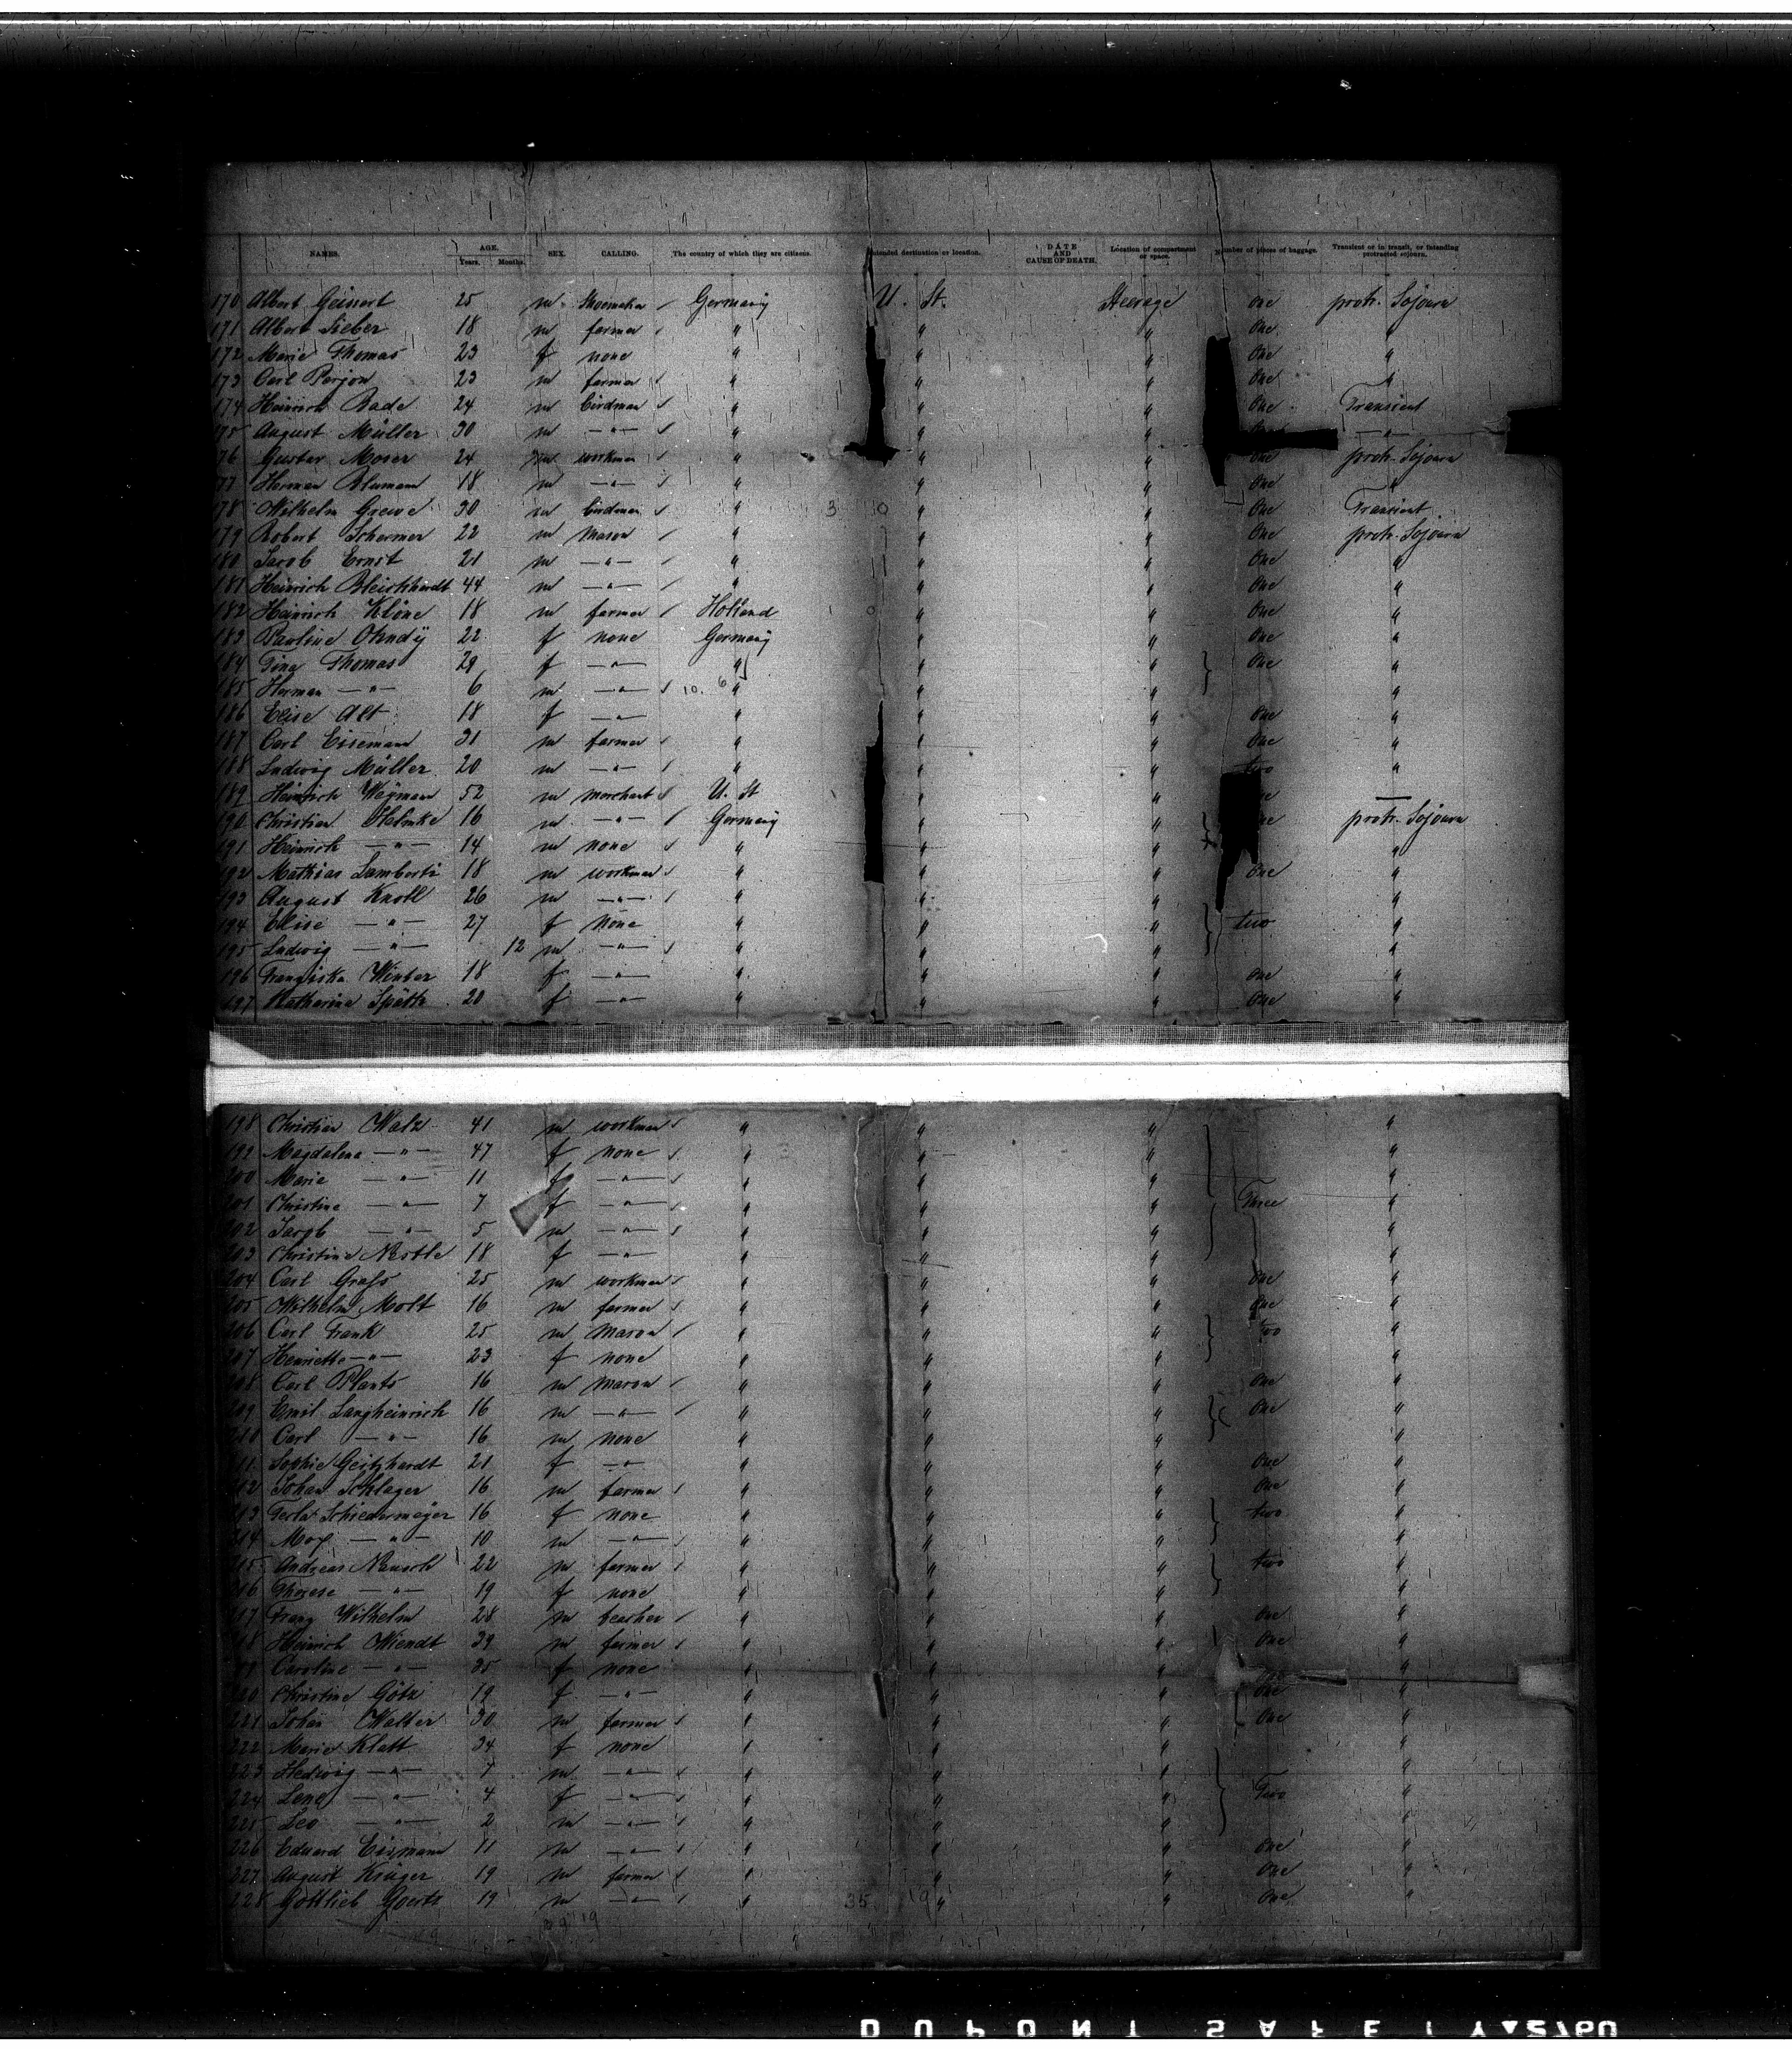 NAMES. AGE. Years. Months. SEX. CALLING. The country of which they are citizens. Intended destination or location. DATE AND CAUSE OF DEATH. Location of compartment or space. Number of pieces of baggage. Transient or in transit, or intending protracted sojourn.
170 Albert Geinert 25 m Shoemaker Germany U. St. Steerage One protr. Sojourn
171 Albert Sieber 18 m farmer " " " One "
172 Marie Thomas 23 f none " " " One "
173 Carl Perjon 23 m farmer " " " One "
174 Heinrich Bade 24 m birdman " " " One Transient
175 August Müller 30 m —"— " " " —"—
176 Gustav Moser 24 m workman " " " One protr. Sojourn
177 Herman Blumann 18 m —"— " " " One "
178 Wilhelm Greve 30 m birdman " 3 0 " " One Transient
179 Robert Schermer 22 m Mason " " " One protr. Sojourn
180 Jacob Ernst 21 m —"— " " " One "
181 Heinrich Bleichhardt 44 m —"— " " " One "
182 Heinrich Klöne 18 m farmer Holland " " One "
183 Pauline Ohndÿ 22 f none Germany " " One "
184 Tina Thomas 29 f —"— " " " One "
185 Herman —"— 6 m —"— 10. 6 " " " "
186 Elise Alt 18 f —"— " " " One "
187 Carl Eisemann 31 m farmer " " " One "
188 Ludwig Müller 20 m —"— " " " two "
189 Heinrich Weÿmann 52 m merchant U. St " " —
190 Christian Helmke 16 m —"— Germany " " protr. Sojourn
191 Heinrich —"— 14 m none " " " "
192 Mathias Lamberti 18 m workman " " " One "
193 August Knoll 26 m —"— " " " "
194 Elise —"— 27 f none " " " two "
195 Ludwig —"— 12 m —"— " " " "
196 Franziska Winter 18 f —"— " " " One "
197 Katharina Späth 20 f —"— " " " One "
198 Christian Walz 41 m workman " " " "
199 Magdalena —"— 47 f none " " " "
200 Marie —"— 11 f —"— " " " "
201 Christine —"— 7 f —"— " " " Three "
202 Jacob —"— 5 m —"— " " " "
203 Christine Nestle 18 f —"— " " " "
204 Carl Grafs 25 m workman " " " One "
205 Wilhelm Molt 16 m farmer " " " One "
206 Carl Frank 25 m Mason " " " two "
207 Henriette —"— 23 f none " " " "
208 Carl Plants 16 m Mason " " " One "
209 Emil Langheinrich 16 m —"— " " " One "
210 Carl —"— 16 m none " " " "
211 Sophie Geitzhardt 21 f —"— " " " One "
212 Johan Schlager 16 m farmer " " " One "
213 Schiedermeÿer 16 f none " " " two "
214 Max —"— 10 m —"— " " " "
215 Andreas Rausch 22 m farmer " " " two "
216 Therese —"— 19 f none " " " "
217 Franz Wilhelm 28 m teacher " " " One "
218 Heinrich Wiendt 39 m farmer " " " One "
219 Caroline —"— 35 f none " " " "
220 Christine Götz 19 f —"— " " " One "
221 Johan Walter 30 m farmer " " " One "
222 Marie Klatt 34 f none " " " "
223 Hedwig —"— 7 m —"— " " " "
224 Lena —"— 4 f —"— " " " Two "
225 Leo —"— 2 m —"— " " " "
226 Eduard Eismann 11 m —"— " " " One "
227 August Krüger 19 m farmer " " " One "
228 Gottlieb Goertz 19 m —"— " 35 19 " " One "
39 19
DUPONT SAFETY